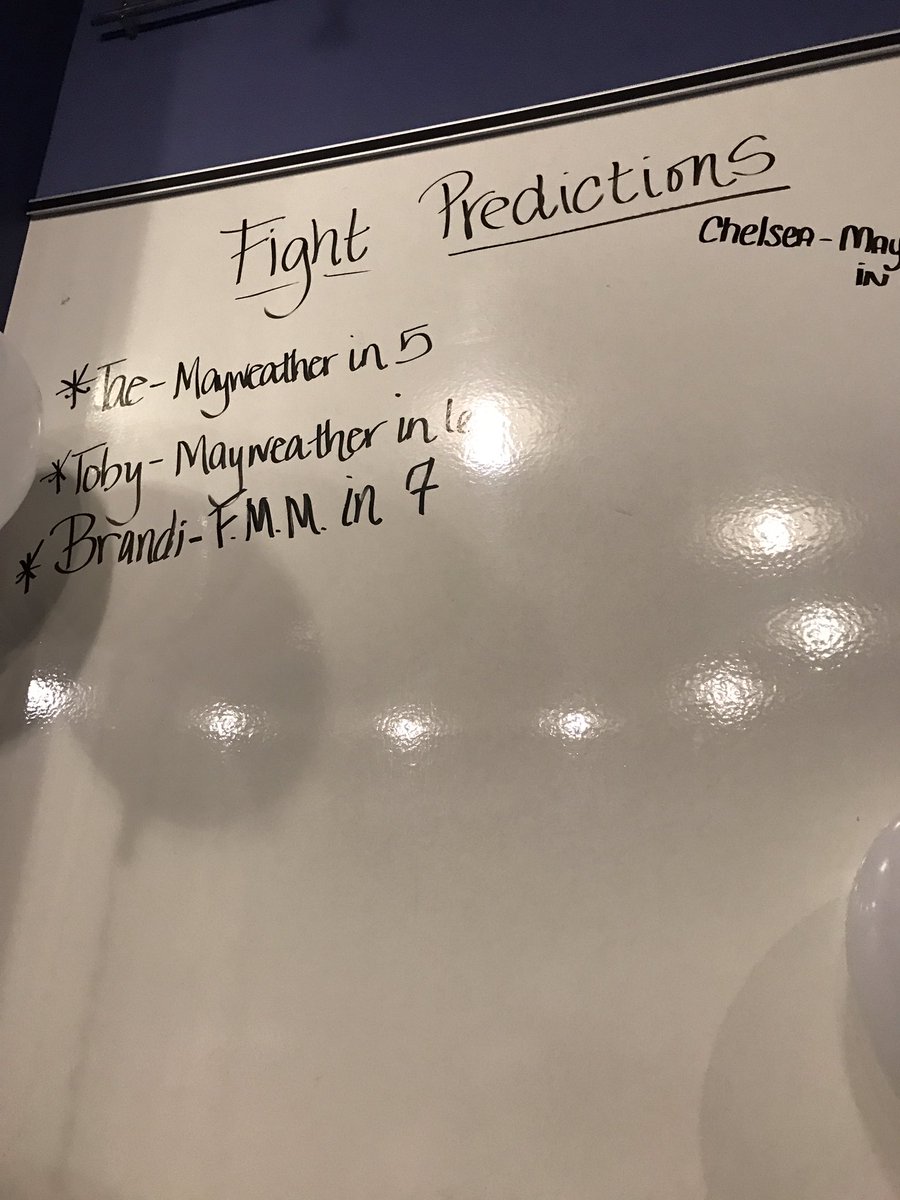 Fight Predictions
Chelsea - May
in
*Tae - Mayweather in 5
*Toby - Mayweather in
* Brandi - F.M.M. in 7